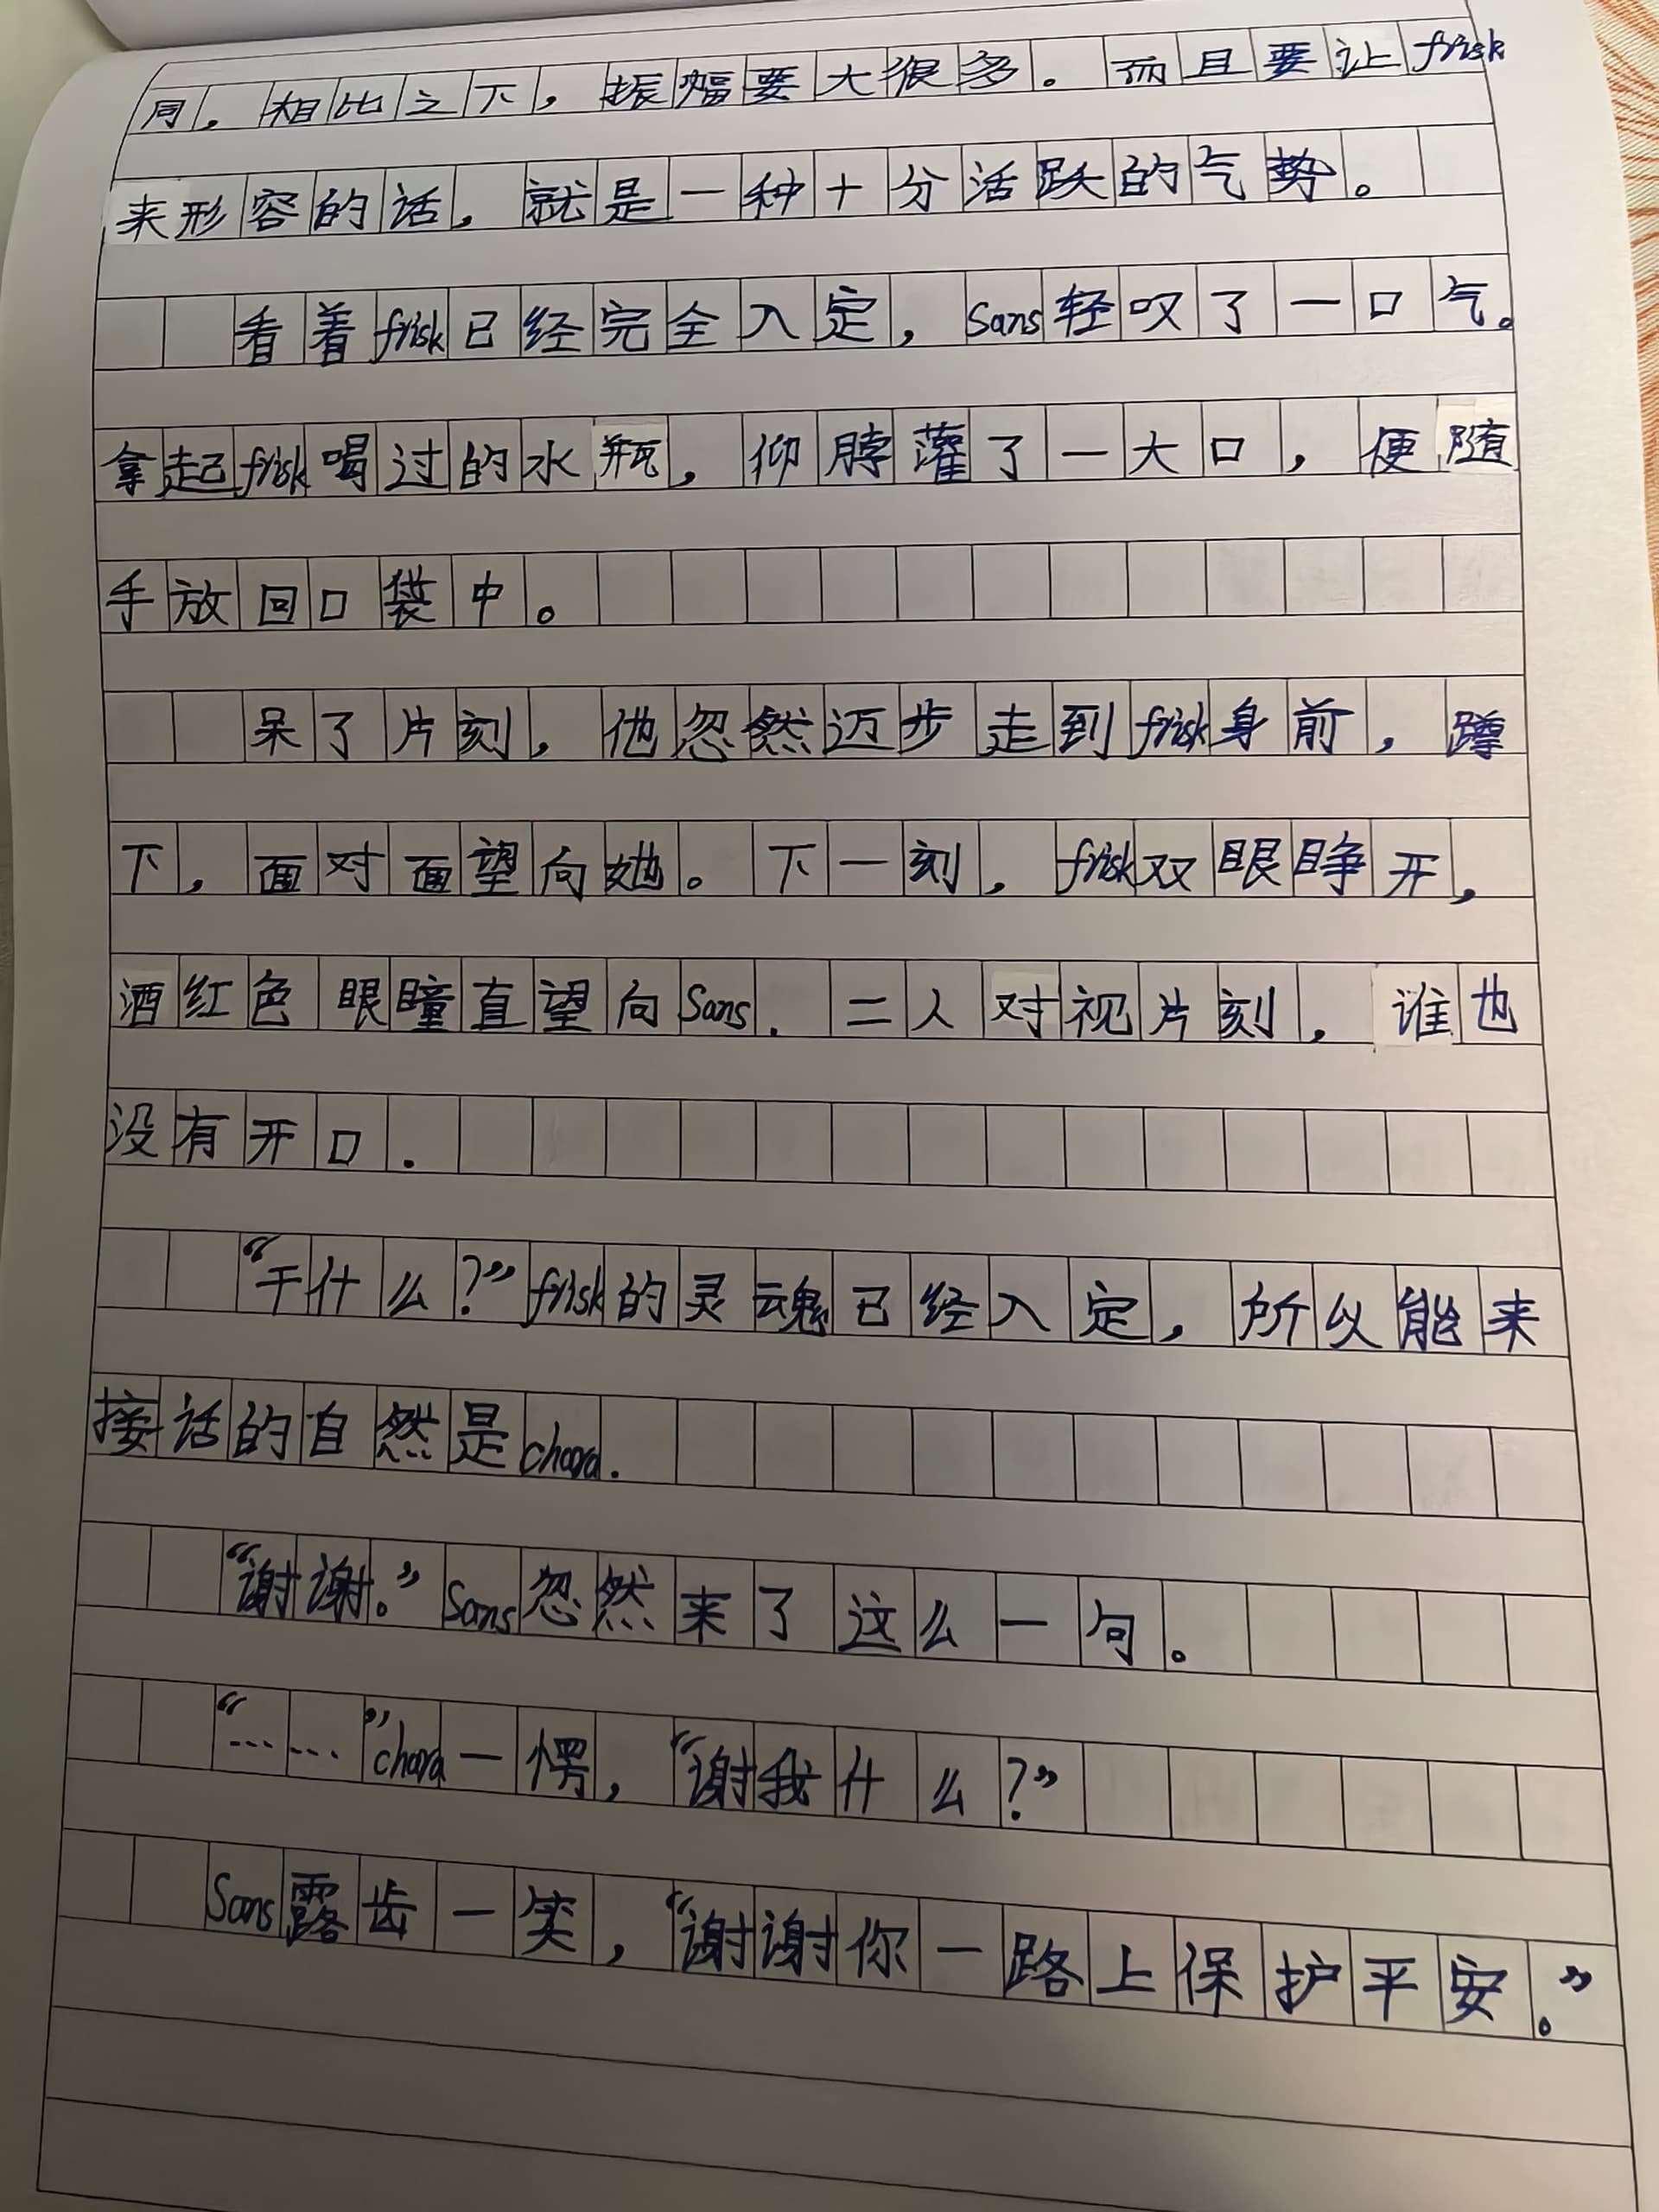 同，相比之下，振幅要大很多。而且要让frisk
来形容的话，就是一种十分活跃的气势。
看着frisk已经完全入定，Sans轻叹了一口气。
拿起frisk喝过的水瓶，仰脖灌了一大口，便随
手放回口袋中。
呆了片刻，他忽然迈步走到frisk身前，蹲
下，面对面望向她。下一刻，frisk双眼睁开，
酒红色眼瞳直望向Sans. 二人对视片刻，谁也
没有开口.
“干什么？”frisk的灵魂已经入定，所以能来
接话的自然是chara.
“谢谢。”Sans忽然来了这么一句。
“……”chara一愣，“谢我什么？”
Sans露齿一笑，“谢谢你一路上保护平安。”